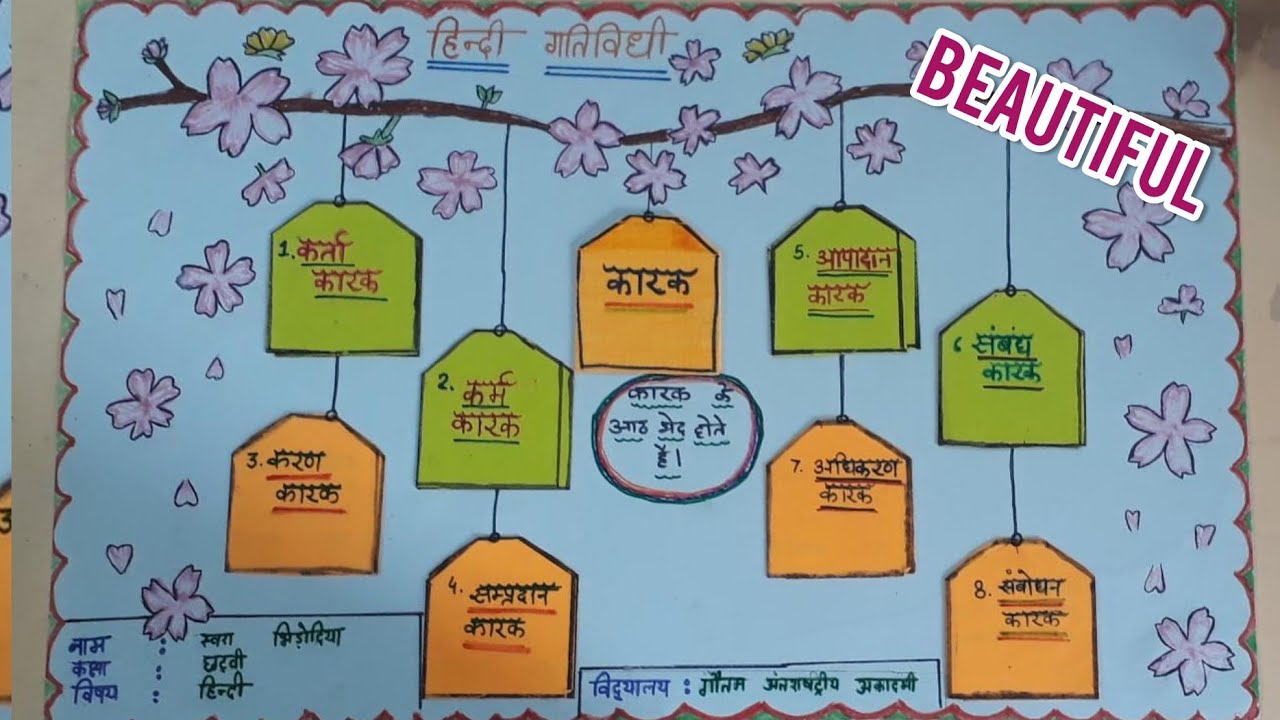 हिन्दी गतिविधी
BEAUTIFUL
कारक
कारक के
आठ भेद होते
हैं।
1. कर्ता
कारक
2. कर्म
कारक
3. करण
कारक
4. सम्प्रदान
कारक
5. आपादान
कारक
6 संबंध
कारक
7. अधिकरण
कारक
8. संबोधन
कारक
नाम : स्वरा भिड़ोदिया
कक्षा : छटवी
विषय : हिन्दी
विद्यालय : गौतम अंतराष्ट्रीय अकादमी